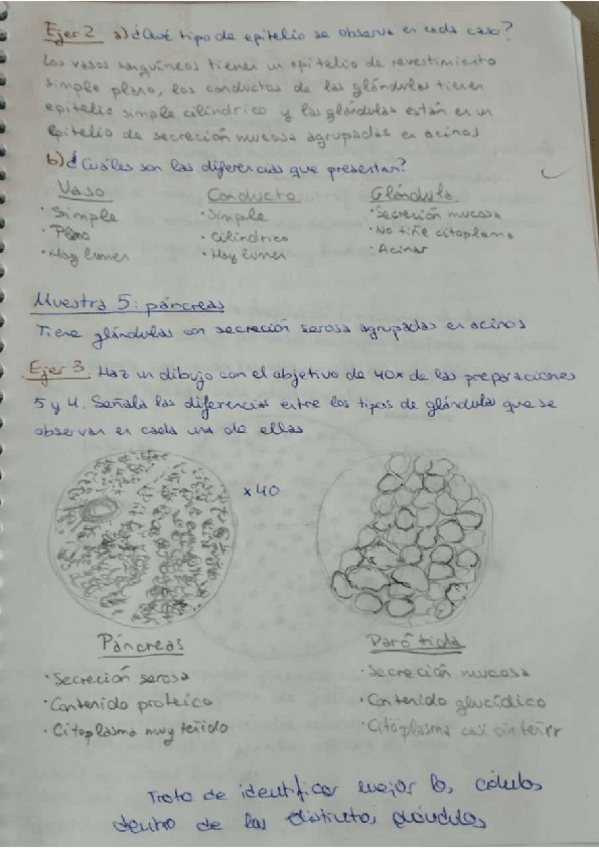 Ejer 2 a) ¿Qué tipo de epitelio se observa en cada caso?
Los vasos sanguíneos tienen un epitelio de revestimiento
simple plano, los conductos de las glándulas tienen
epitelio simple cilíndrico y las glándulas están en un
epitelio de secreción mucosa agrupadas en acinos
b) ¿Cuáles son las diferencias que presentan?
Vaso Conducto Glándula
· Simple · Simple · Secreción mucosa
· Plano · Cilíndrico · No tiñe citoplasma
· Hay lumen · Hay lumen · Acinar
Muestra 5: páncreas
Tiene glándulas con secreción serosa agrupadas en acinos
Ejer 3. Haz un dibujo con el objetivo de 40x de las preparaciones
5 y 4. Señala las diferencias entre los tipos de glándulas que se
observan en cada una de ellas
x40
Páncreas Parótida
· Secreción serosa · Secreción mucosa
· Contenido proteico · Contenido glucídico
· Citoplasma muy teñido · Citoplasma casi sin teñir
Trata de identificar mejor las células
dentro de las distintas glándulas